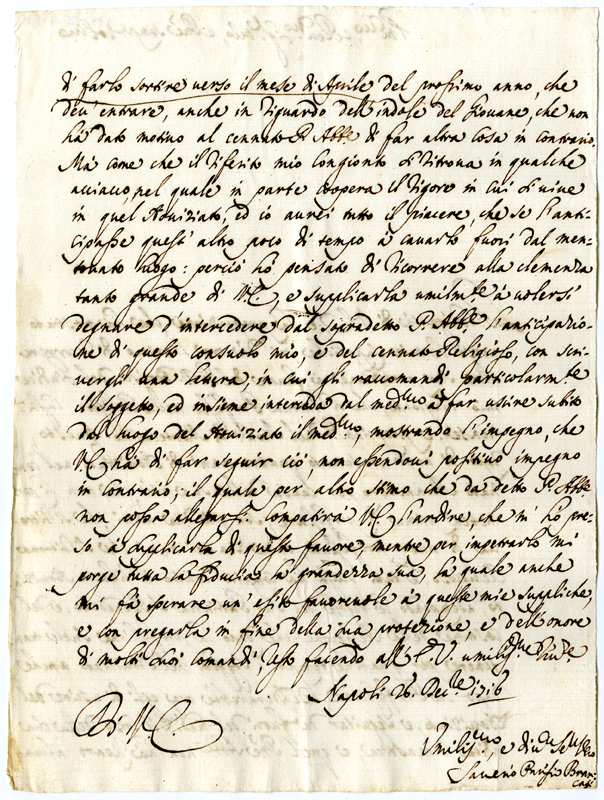 di farlo sortire verso il mese di Aprile del prossimo anno, che
deu' entrare, anche in riguardo dell' indole del Giouane, che non
hà dato motiuo al cennato P. Abbe di far altra cosa in contrario.
Mà come che il riferito mio Congionto si ritroua in qualche
acciacco, nel quale in parte coopera il rigore in cui si uiue
in quel Nouiziato, ed io aurei tutto il piacere, che se l' anti-
cipasse quest' altro poco di tempo à cauarlo fuori dal men-
touato luogo: perciò hò pensato di ricorrere alla clemenza
tanto grande di V.E., e supplicarla umilmte à uolersi
degnare d' intercedere dal sopradetto P. Abbe l' anticipazio-
ne di questo consuolo mio, e del cennato Religioso, con scri-
uergli una lettera, in cui gli raccomandi particolarmte
il soggetto, ed insieme interceda dal medmo à far uscire subito
dal luogo del Nouiziato il medmo, mostrando l' impegno, che
V.E. hà di far seguir ciò, non essendoui positiuo impegno
in contrario; il quale per altro stimo che da detto P. Abbe
non possa allegarsi. Compatirà V.E. l' ardire, che m' hò pre-
so à supplicarla di questo fauore, mentre per impetrarlo mi
porge tutta la fiducia la grandezza sua, la quale anche
mi fà sperare un' esito fauoreuole à queste mie suppliche,
e con pregarla in fine della sua protezione, e dell' onore
di molti suoi comandi, resto facendo all' E.V. umilisme riue.
Napoli 26. Decbe 1716
Di V.E.
Umilismo, e diuo Seruo
Sauerio Brancati